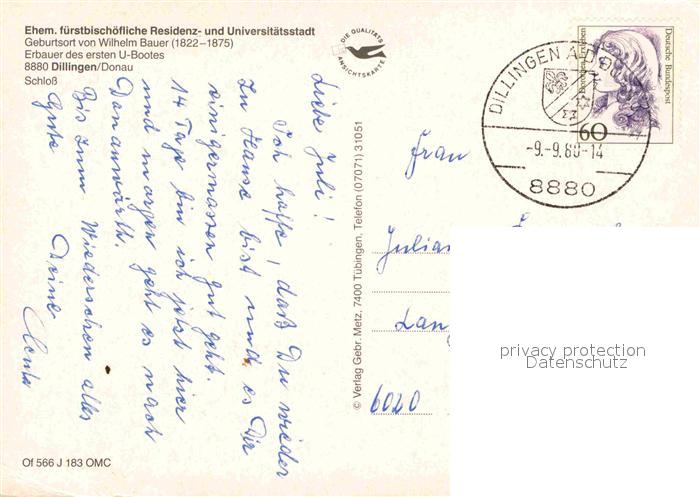 Ehem. fürstbischöfliche Residenz- und Universitätsstadt
Geburtsort von Wilhelm Bauer (1822–1875)
Erbauer des ersten U-Bootes
8880 Dillingen/Donau
Schloß
DIE QUALITÄTS
ANSICHTSKARTE
Liebe Juli!
Ich hoffe, daß Du wieder
zu Hause bist und es Dir
einigermassen gut geht.
14 Tage bin ich jetzt hier
und morgen geht es nach
Donauwörth.
Bis zum Wiedersehen alles
Gute
Deine
© Verlag Gebr. Metz, 7400 Tübingen, Telefon (07071) 31051
Deutsche Bundespost
60
DILLINGEN A.D.
-9.-9.
-14
8880
Frau
6020
privacy protection
Datenschutz
Of 566 J 183 OMC